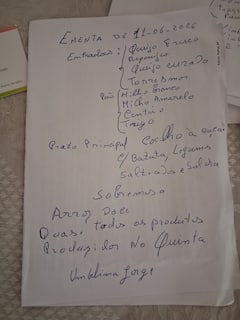 Ementa de 11-06-2026
Entradas: Queijo Fresco
Requeijão
Queijo curado
Torresmos
Pão Milho Branco
Milho Amarelo
Centeio
Trigo
Prato Principal Coelho à
c/ Batata, Legumes
Salteados e Salada
Sobremesa
Arroz Doce
Quase todos os produtos
Produzidos Na Quinta
Umbelina Jorge